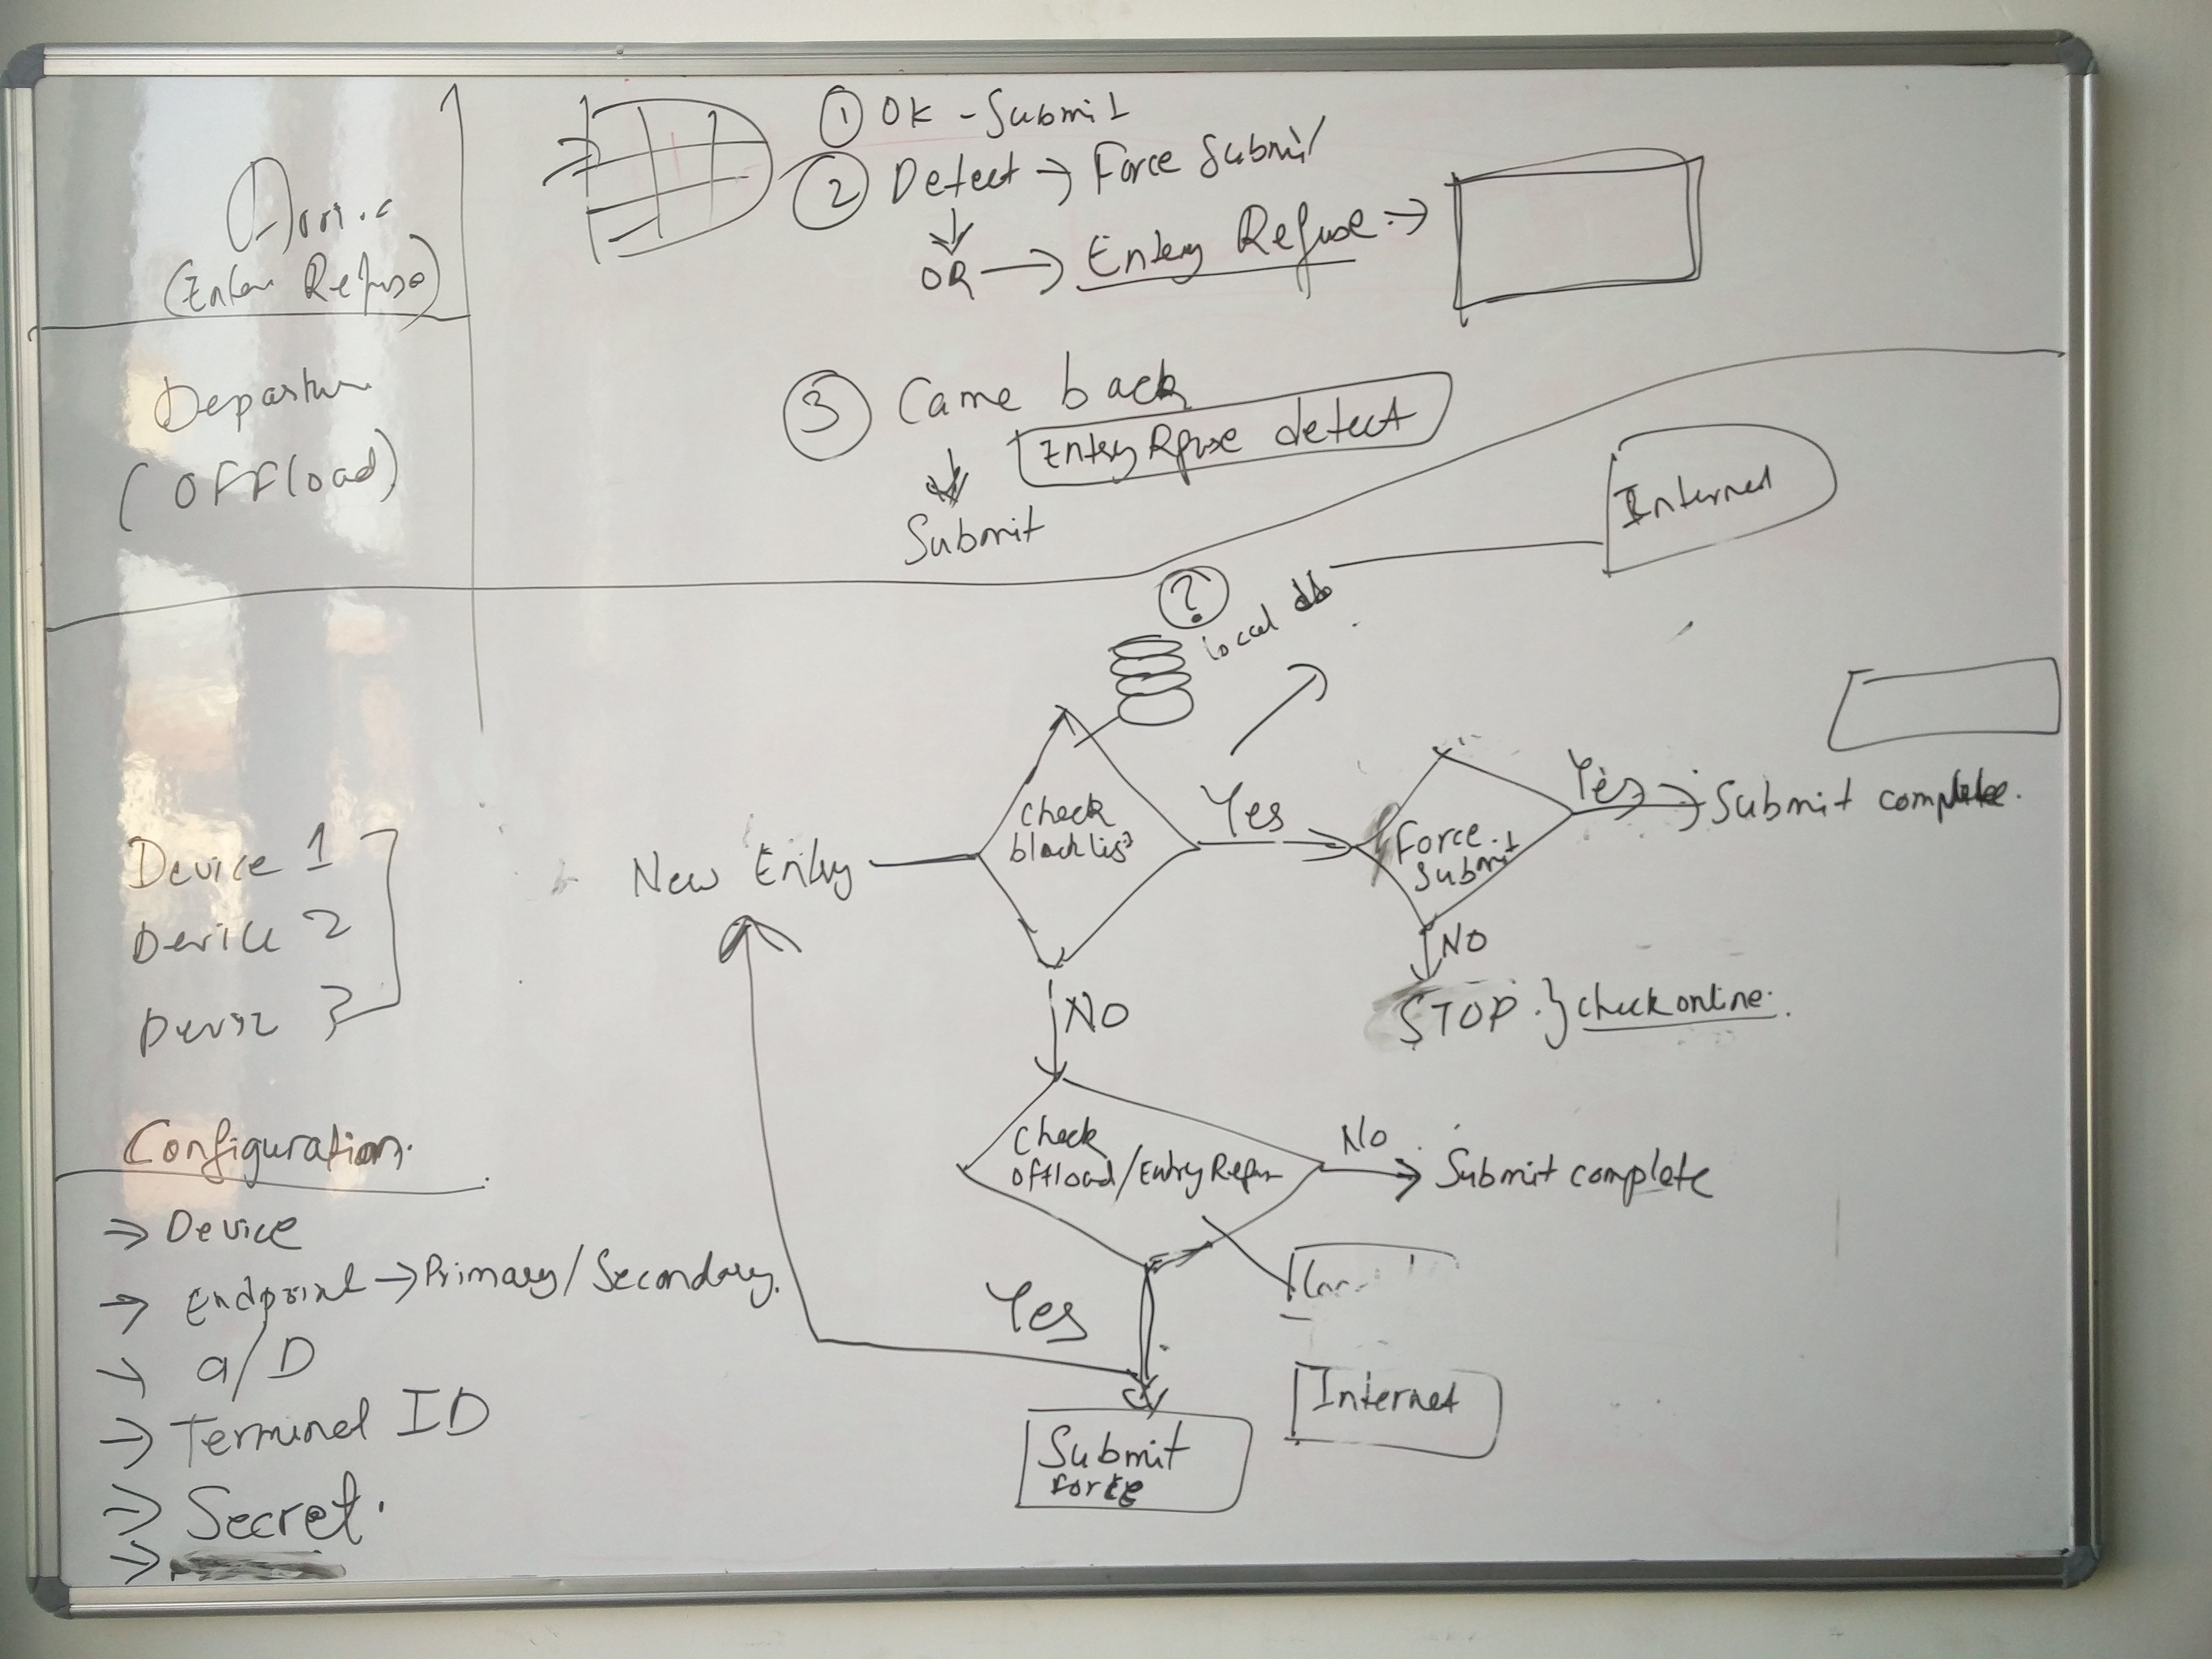 (Enter Refuse)
Departure
(OFFload)
① OK - Submit
② Detect → Force Submit
OR → Entery Refuse →
③ Came back
Entery Rfuse detect
Submit
Internet
?
local db
New Entry
check
blacklist
Yes
Force
Submit
Yes
Submit complete.
NO
STOP } check online.
NO
Check
offload/Entry Refuse
No
Submit complete
Yes
Internet
Submit
Force
Device 1
Device 2
Device 3
Configuration
⇒ Device
→ Endpoint → Primary/Secondary
→ a/D
→ Terminal ID
⇒ Secret.